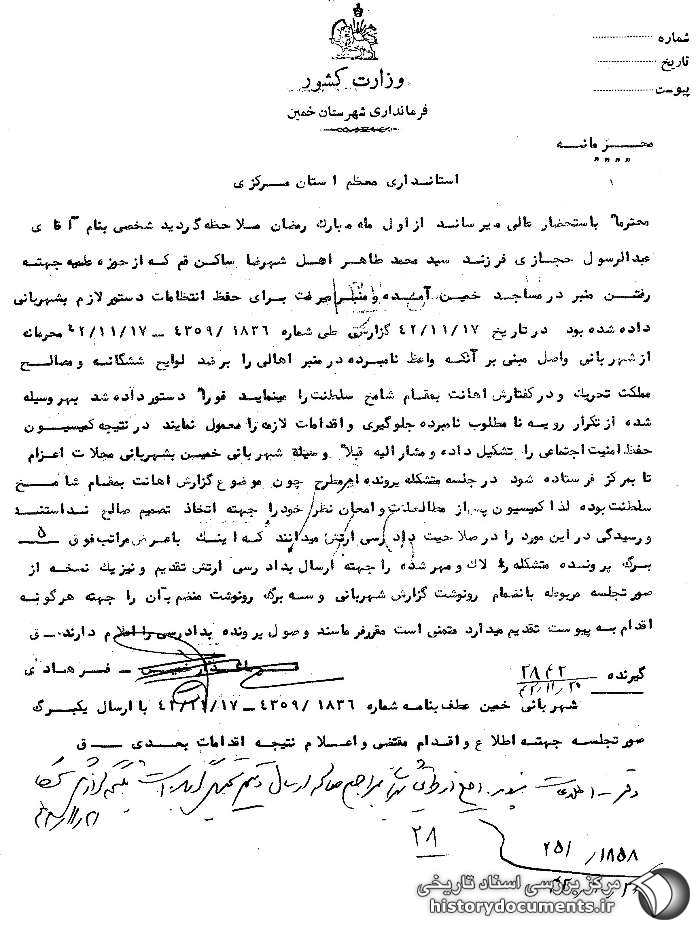 شماره
تاریخ
پیوست
وزارت کشور
فرمانداری شهرستان خمین
محرمانه
استانداری معظم استان مرکزی
محترما" باستحضار عالی میرساند از اول ماه مبارک رمضان ملاحظه گردید شخصی بنام آقای
عبدالرسول حجازی فرزند سید محمد طاهر اهل شهرضا ساکن قم که از حوزه علمیه جهته
رفتن منبر در مساجد خمین آمده و منبر میرفت برای حفظ انتظامات دستور لازم بشهربانی
داده شده بود در تاریخ ۴۲/۱۱/۱۷ گزارشی طی شماره ۱۸۳۶/ ۴۳۵۹ – ۴۲/۱۱/۱۷ محرمانه
از شهربانی واصل مبنی بر آنکه واعظ نامبرده در منبر اهالی را بر ضد لوایح ششگانه و مصالح
مملکت تحریک و در گفتارش اهانت بمقام شامخ سلطنت را مینماید فورا" دستور داده شد بهر وسیله
شده از تکرار رویه نامطلوب نامبرده جلوگیری و اقدامات لازمه را معمول نمایند در نتیجه کمیسیون
حفظ امنیت اجتماعی را تشکیل داده و مشارالیه قبلا" وسیله شهربانی خمین بشهربانی محلات اعزام
تا بمرکز فرستاده شود در جلسه متشکله پرونده امر مطرح چون موضوع گزارش اهانت بمقام شامخ
سلطنت بوده لذا کمیسیون پس از مطالعات و امعان نظر خود را جهته اتخاذ تصمیم صالح نداستند
و رسیدگی در این مورد را در صلاحیت دادرسی ارتش میدانند که اینک باعرض مراتب فوق ۵
برگ پرونده متشکله را لاک و مهر شده را جهته ارسال بدادرسی ارتش تقدیم و نیز یک نسخه از
صورتجلسه مربوطه بانضمام رونوشت گزارش شهربانی و سه برگ رونوشت منضم بآن را جهته هرگونه
اقدام به پیوست تقدیم میدارد متمنی است مقرر فرمایند وصول پرونده بدادرسی را اعلام دارند. ق
فرماندار خمین – فرهادی
گیرنده
۲۸۴۲
۴۲/۱۱/۲۰
شهربانی خمین عطف بنامه شماره ۱۸۳۶/ ۴۳۵۹ – ۴۲/۱۱/۱۷ با ارسال یکبرگ
صورتجلسه جهته اطلاع و اقدام مقتضی و اعلام نتیجه اقدامات بعدی – ق
دفتر – اطلاعات
۲۸
۲۵۱/۱۸۵۸
مرکز بررسی اسناد تاریخی
historydocuments.ir